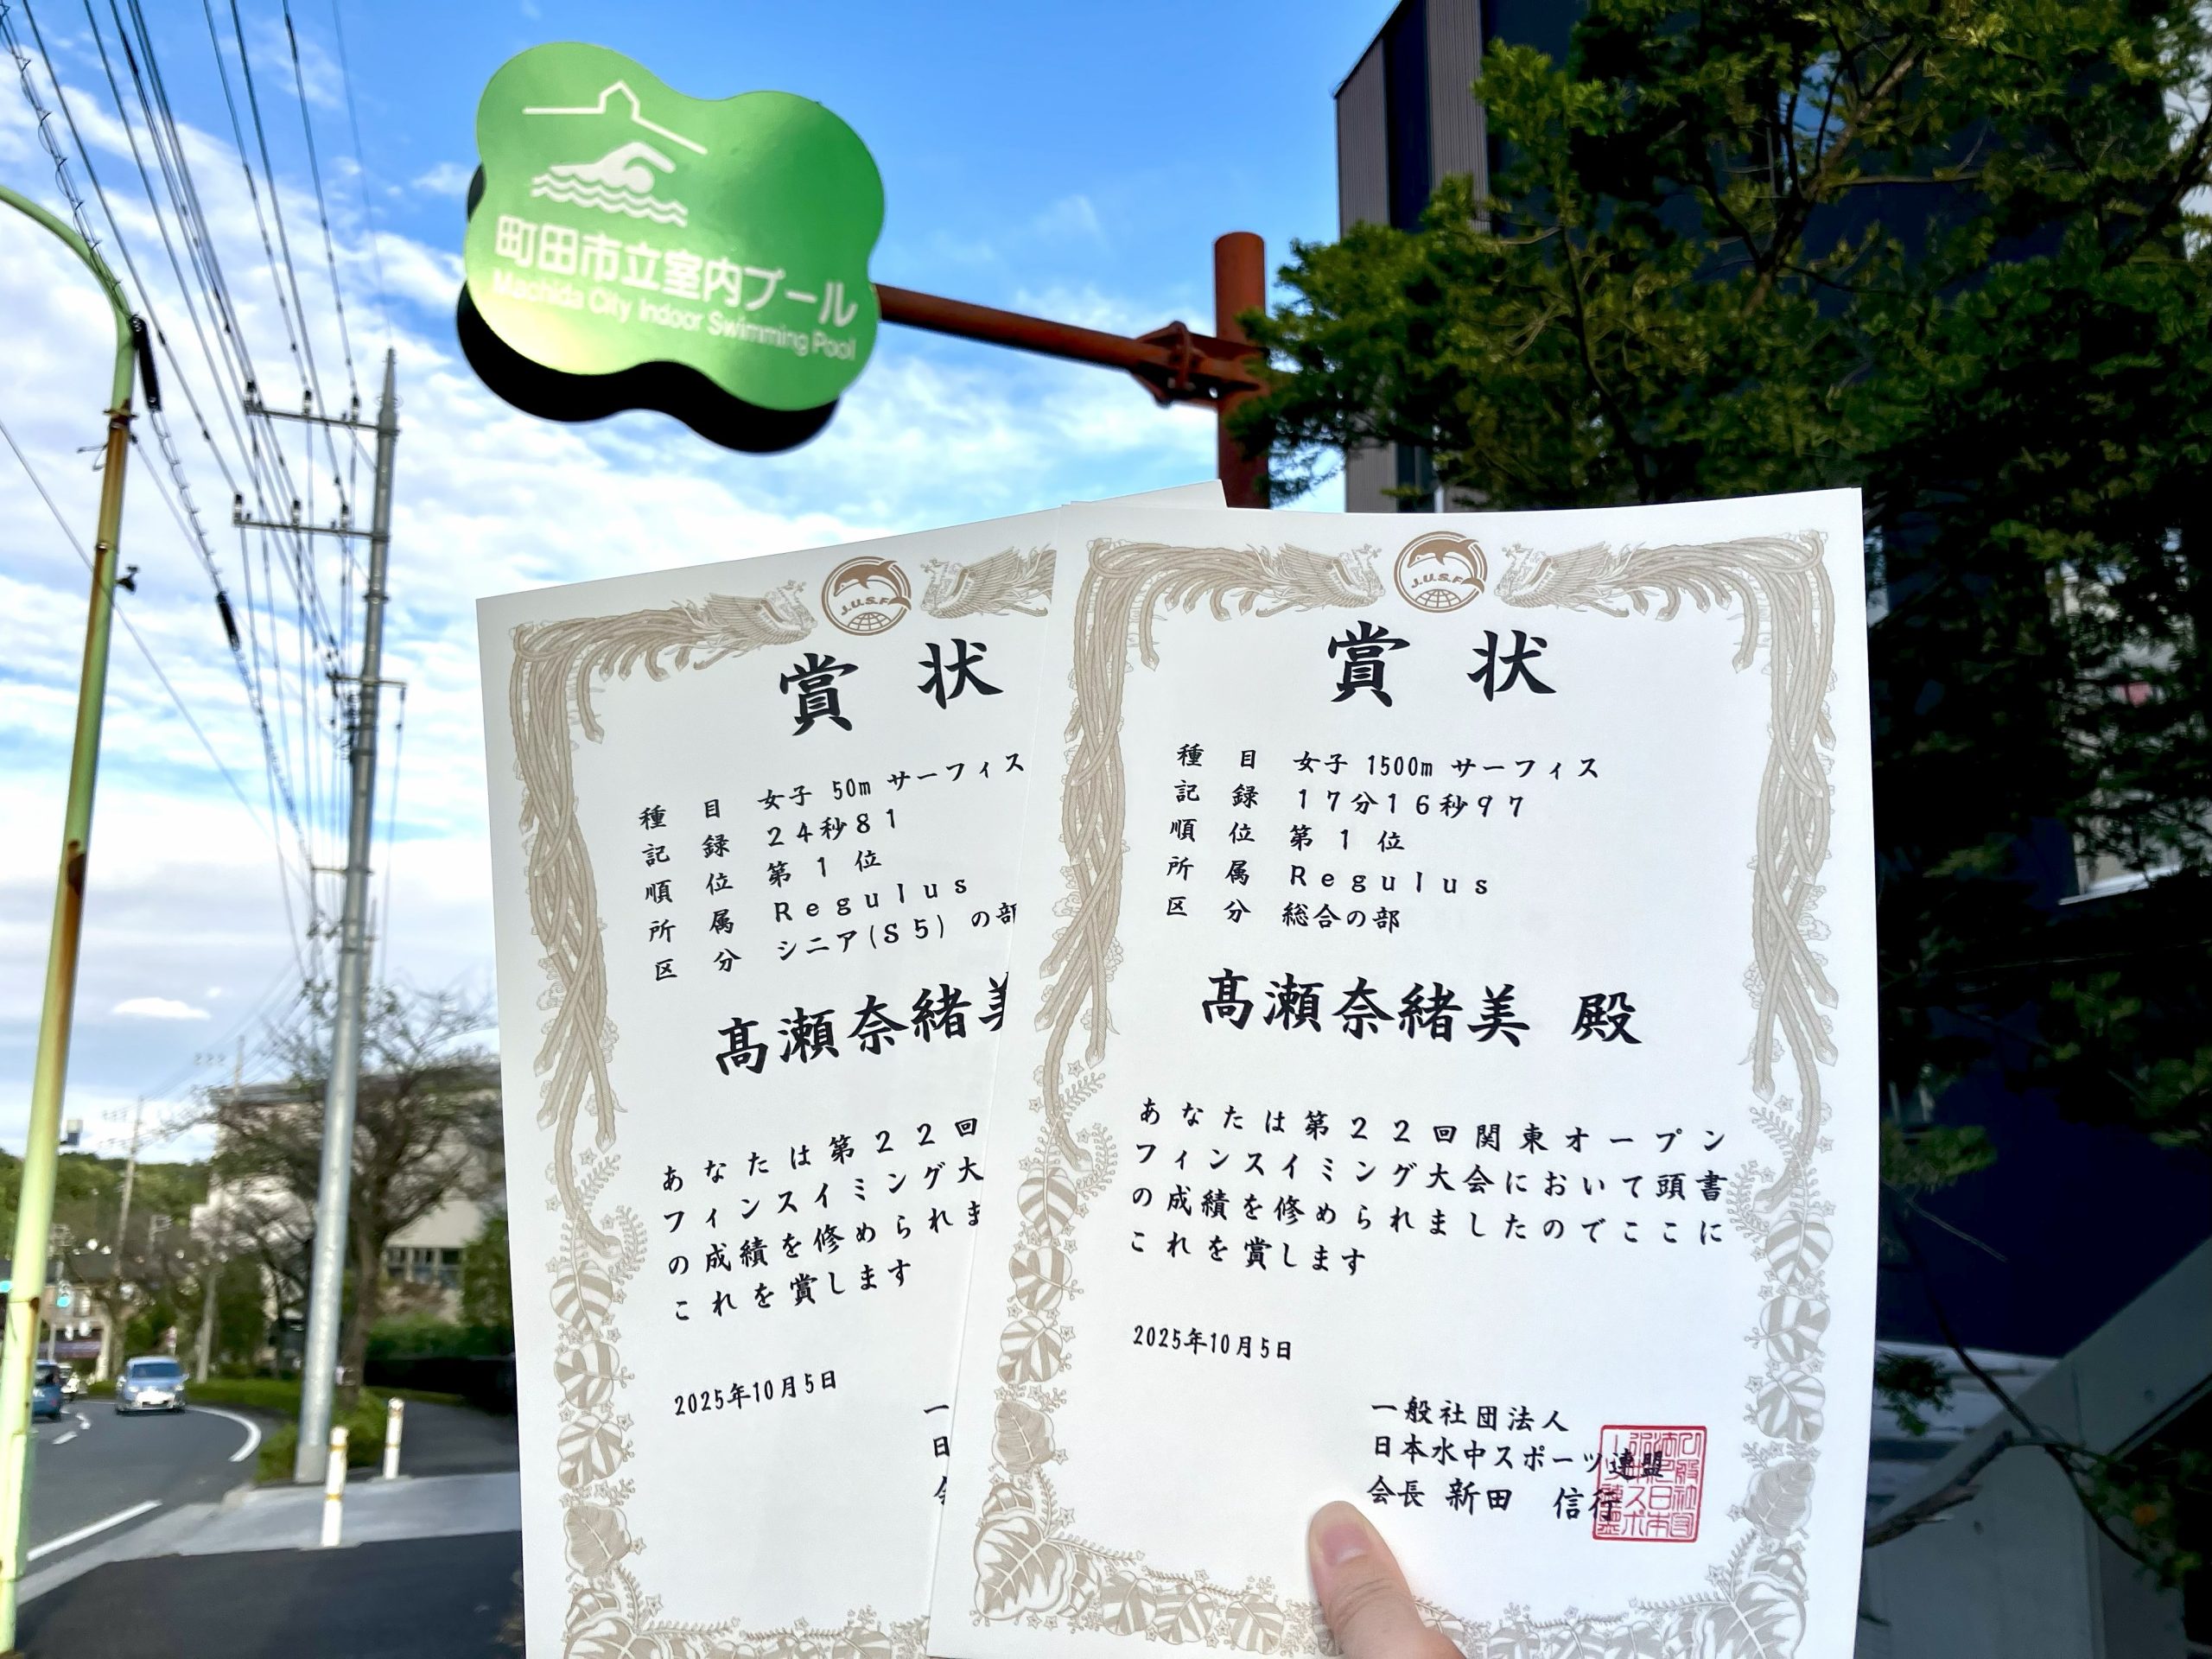 町田市立室内プール
Machida City Indoor Swimming Pool
J.U.S.F
賞 状
種 目 女子 50m サーフィス
記 録 24秒81
順 位 第 1 位
所 属 Regulus
区 分 シニア(S5) の部
髙瀬奈緒美
あなたは第22回
フィンスイミング大
の成績を修められま
これを賞します
2025年10月5日
一
日
J.U.S.F
賞 状
種 目 女子 1500m サーフィス
記 録 17分16秒97
順 位 第 1 位
所 属 Regulus
区 分 総合の部
髙瀬奈緒美 殿
あなたは第22回関東オープン
フィンスイミング大会において頭書
の成績を修められましたのでここに
これを賞します
2025年10月5日
一般社団法人
日本水中スポーツ連盟
会長 新田 信行